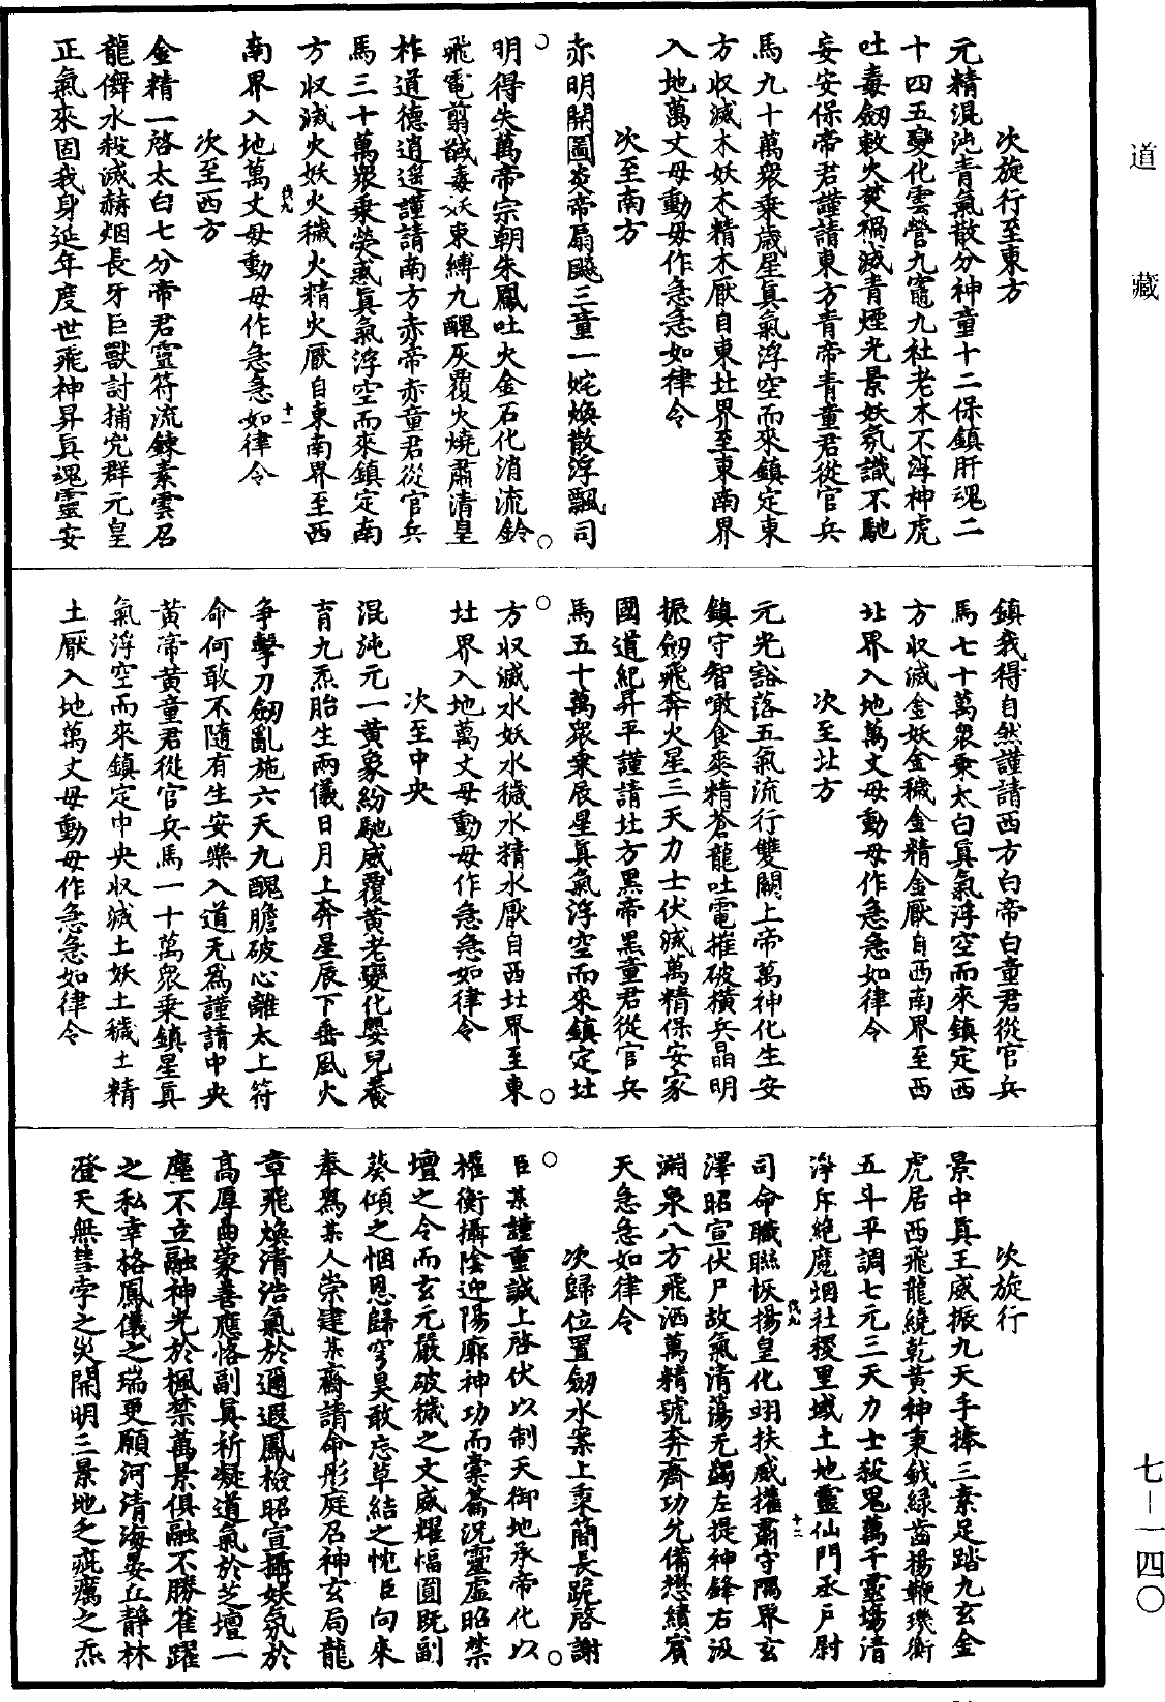 道藏
次旋行至東方
元精混沌青氣散分神童十二保鎮肝魂二
十四五變化雲營九竈九社老木不浮神虎
吐毒劒敕火焚禍滅青煙光景妖氛識不馳
妄安保帝君謹請東方青帝青童君從官兵
馬九十萬衆乗歳星眞氣浮空而來鎮定東
方収滅木妖木精木厭自東北界至東南界
入地萬丈毋動毋作急急如律令
次至南方
赤明開圖炎帝扇飈三童一姹煥散浮飄司
明得失萬帝宗朝朱鳳吐火金石化消流鈴
飛電翦馘毒妖束縛九醜灰覆火燒肅清皇
柞道德逍遥謹請南方赤帝赤童君從官兵
馬三十萬衆乗熒惑眞氣浮空而來鎮定南
方収滅火妖火穢火精火厭自東南界至西
南界入地萬丈毋動毋作急急如律令
次至西方
金精一啓太白七分帝君靈符流錬素雲召
龍儛水殺滅赫烟長牙巨獸討捕兇群元皇
正氣來固我身延年度世飛神昇眞魂靈安
鎮我得自然謹請西方白帝白童君從官兵
馬七十萬衆乗太白眞氣浮空而來鎮定西
方収滅金妖金穢金精金厭自西南界至西
北界入地萬丈毋動毋作急急如律令
次至北方
元光豁落五氣流行雙關上帝萬神化生安
鎮守智噉食爽精蒼龍吐電摧破橫兵晶明
振劒飛奔火星三天力士伏滅萬精保安家
國道紀昇平謹請北方黑帝黑童君從官兵
馬五十萬衆乗辰星眞氣浮空而來鎮定北
方収滅水妖水穢水精水厭自西北界至東
北界入地萬丈毋動毋作急急如律令
次至中央
混沌元一黃象紛馳威覆黃老變化嬰兒養
育九炁胎生兩儀日月上奔星辰下垂風火
爭擊刀劒亂施六天九醜膽破心離太上符
命何敢不隨有生安樂入道无爲謹請中央
黃帝黃童君從官兵馬一十萬衆乗鎮星眞
氣浮空而來鎮定中央収滅土妖土穢土精
土厭入地萬丈毋動毋作急急如律令
次旋行
景中真王威振九天手捧三素足踏九玄金
虎居西飛龍繞乾黃神秉鉞緑齒揚鞭璣衡
五斗平調七元三天力士殺鬼萬千靈場清
淨斥絶魔烟社稷里域土地靈仙門丞戸尉
司命職聯恢揚皇化翊扶威權肅守隅界玄
澤昭宣伏尸故氣清蕩无蠲左提神鋒右汲
淵泉八方飛洒萬精號奔齋功允備懋績賓
天急急如律令
次歸位置劒水案上秉簡長跪啓謝
臣某謹重誠上啓伏以制天御地承帝化以
權衡攝陰迎陽廓神功而橐籥況靈虛昭禁
壇之令而玄元嚴破穢之文威耀幅圓既副
葵傾之悃恩歸穹昊敢忘草結之忱臣向來
奉爲某人崇建某齋請命彤庭召神玄局龍
章飛煥清浩氣於邇遐鳳檢昭宣攝妖氛於
高厚曲蒙善應恪副眞祈凝道氣於芝壇一
塵不立融神光於楓禁萬景俱融不勝雀躍
之私幸格鳳儀之瑞更願河清海晏丘靜林
澄天無彗孛之災開明三景地乏疵癘之炁
七—一四〇